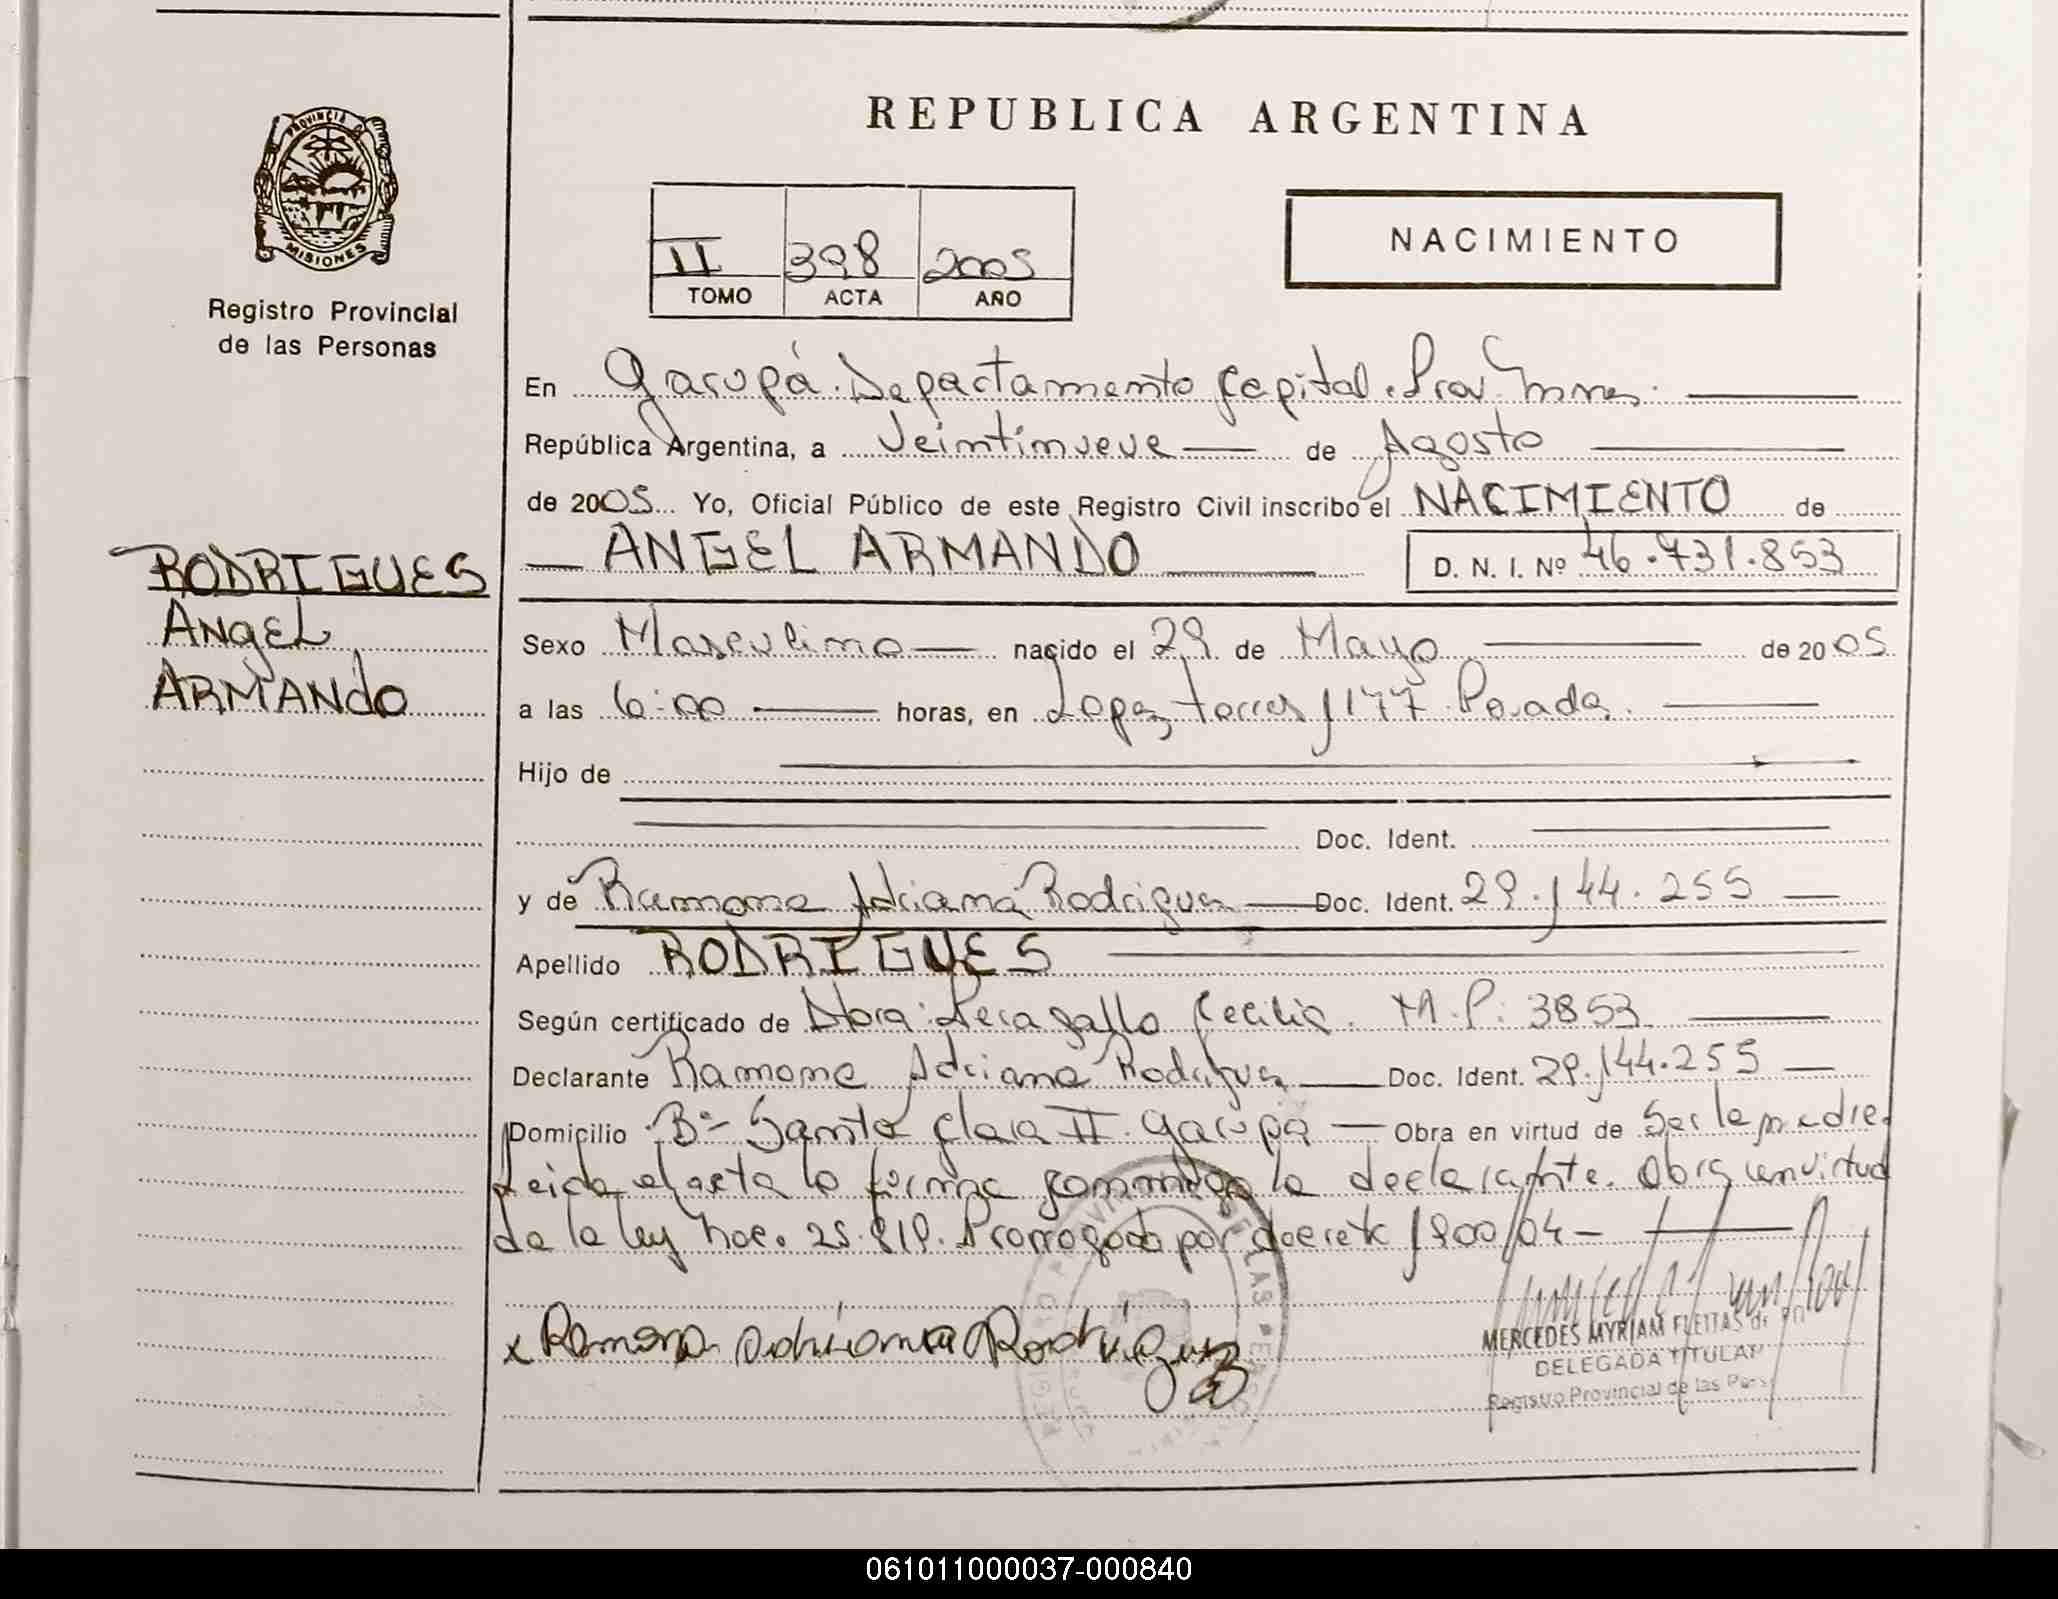 REPUBLICA ARGENTINA
PROVINCIA D
MISIONES
Registro Provincial
de las Personas
II 398 2005
TOMO ACTA AÑO
NACIMIENTO
En Garupá. Departamento Capital. Prov. Mnes.
República Argentina, a Veintinueve de Agosto
de 2005 Yo, Oficial Público de este Registro Civil inscribo el NACIMIENTO de
ANGEL ARMANDO D. N. I. Nº 46.731.853
RODRIGUES
Angel
ARMANdo
Sexo Masculino nacido el 29 de Mayo de 2005
a las 6:00 horas, en Lopez torres 1177 Posadas.
Hijo de
Doc. Ident.
y de Ramona Adriana Rodriguez Doc. Ident. 29.144.255
Apellido RODRIGUES
Según certificado de Dora: Cecilia. M.P: 3853
Declarante Ramona Adriana Rodriguez Doc. Ident. 29.144.255
Domicilio Bº Santa Clara II. Garupá Obra en virtud de Ser la madre.
Leida el acta la firma conmigo la declarante. Obra en virtud
de la ley Nac. 25.819. Prorrogada por decreto 1900/04
x Ramona Adriana Rodriguez
MERCEDES MYRIAM FLEITAS de
DELEGADA TITULAR
Registro Provincial de las Pers
061011000037-000840